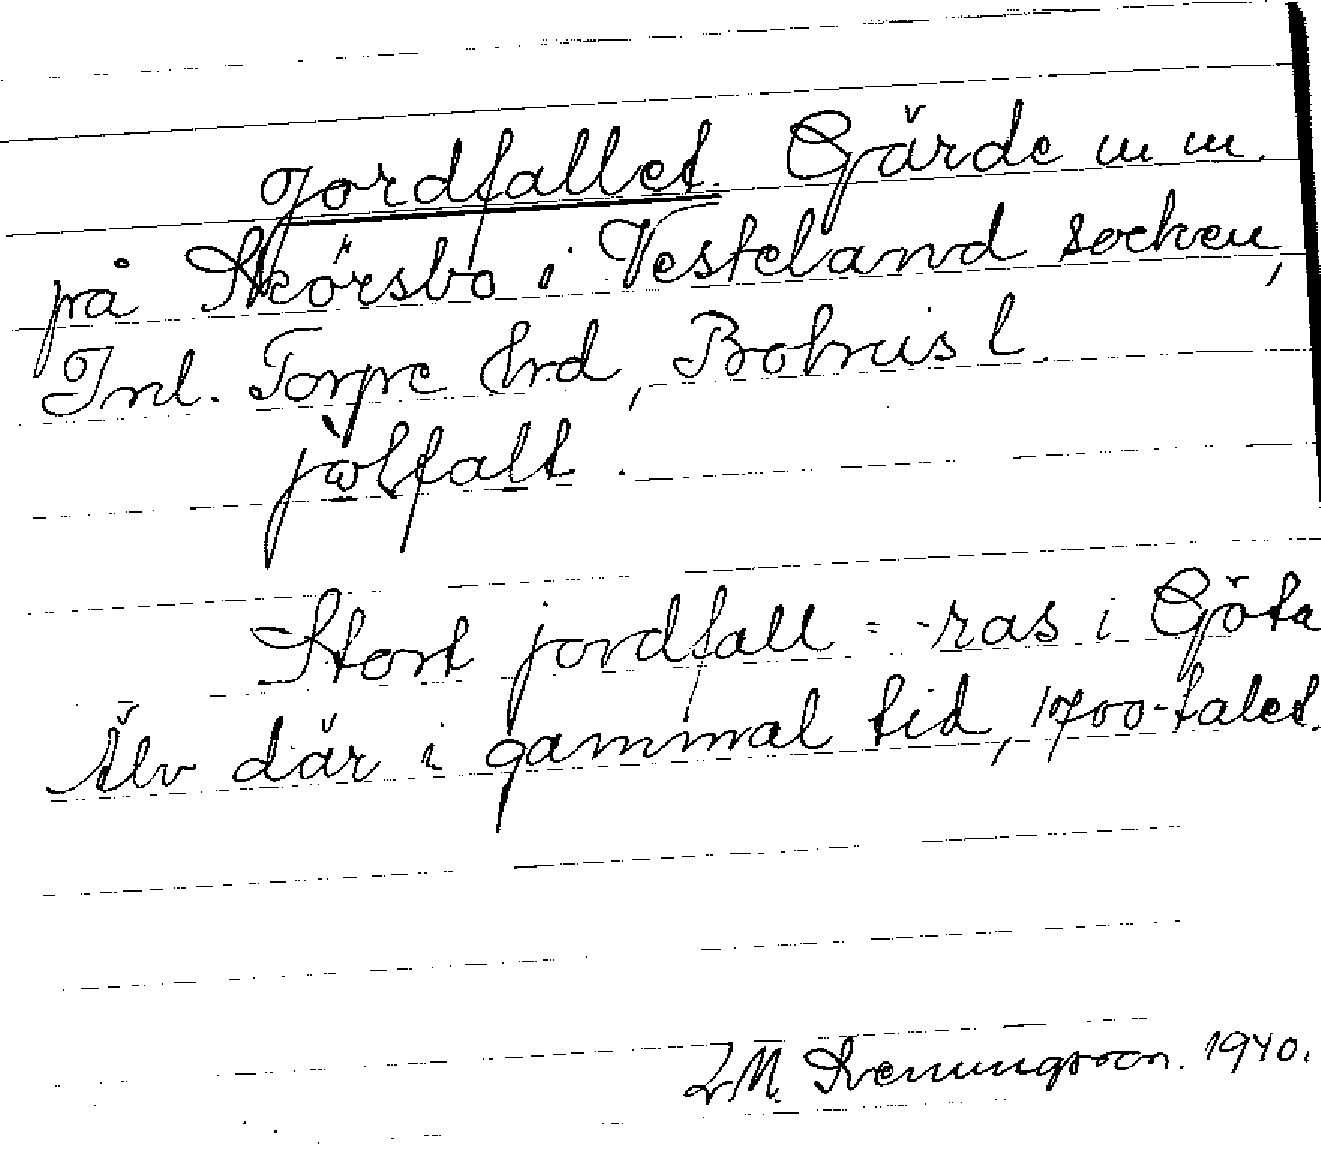 Jordfallet. Gärde m m.
på Skörsbo i Vesteland socken,
Inl. Torpe Hrd, Bohus l.
jòlfalt.
Stort jordfall = -ras i Göta
Älv där i gammal tid, 1700-talet.
L.M. Svenungsson. 1940.